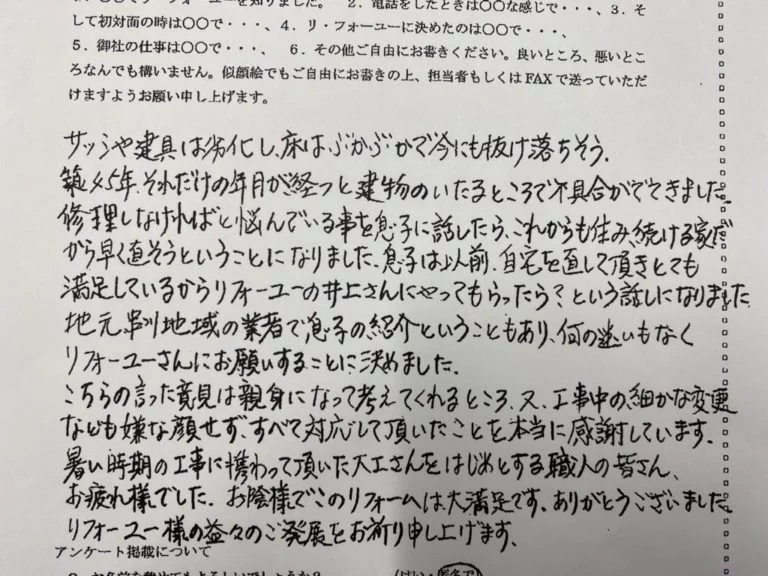 でリフォーユーを知りました。 2．電話をしたときは〇〇な感じで・・・、3．そ
して初対面の時は〇〇で・・・、4．リ・フォーユーに決めたのは〇〇で・・・、
5．御社の仕事は〇〇で・・・、 6．その他ご自由にお書きください。良いところ、悪いとこ
ろなんでも構いません。似顔絵でもご自由にお書きの上、担当者もしくはFAXで送っていただ
けますようお願い申し上げます。
サッシや建具は劣化し、床はぶかぶかで今にも抜け落ちそう。
築45年、それだけの年月が経つと建物のいたるところで不具合がでてきました。
修理しなければと悩んでいる事を息子に話したら、これからも住み続ける家だ
から早く直そうということになりました。息子は以前、自宅を直して頂きとても
満足しているからリフォーユーの井上さんにやってもらったら？という話しになりました。
地元、訓地域の業者で息子の紹介ということもあり、何の迷いもなく
リフォーユーさんにお願いすることに決めました。
こちらの言った意見は親身になって考えてくれるところ、又、工事中の細かな変更
なども嫌な顔せず、すべて対応して頂いたことを本当に感謝しています。
暑い時期の工事に携わって頂いた大工さんをはじめとする職人の皆さん、
お疲れ様でした。お陰様でこのリフォームは大満足です。ありがとうございました。
リフォーユー様の益々のご発展をお祈り申し上げます。
アンケート掲載について